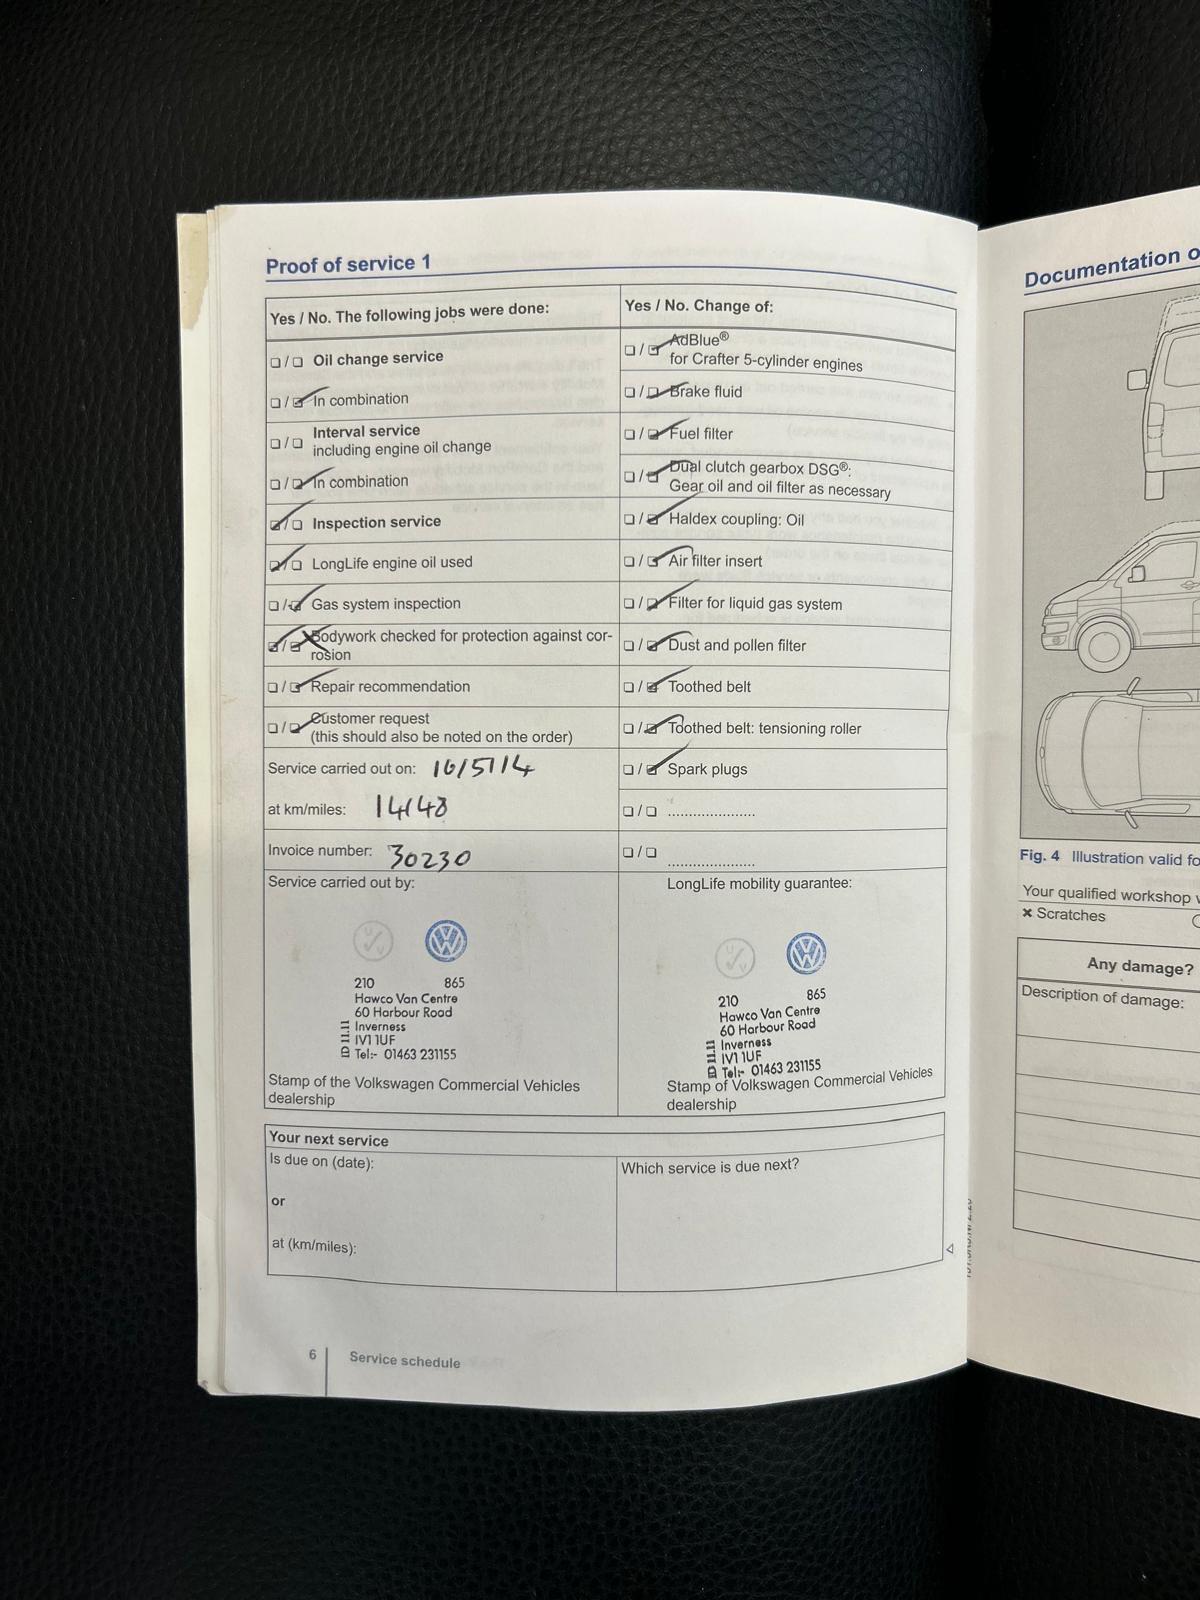 Proof of service 1
Yes / No. The following jobs were done:
☐ / ☐ Oil change service
☐ / ☑ In combination
☐ / ☐ Interval service
including engine oil change
☐ / ☑ In combination
☑ / ☐ Inspection service
☑ / ☐ LongLife engine oil used
☐ / ☑ Gas system inspection
☑ / ☑ Bodywork checked for protection against cor-
rosion
☐ / ☑ Repair recommendation
☐ / ☑ Customer request
(this should also be noted on the order)
Service carried out on: 16/5/14
at km/miles: 14148
Invoice number: 30230
Service carried out by:
210 865
Hawco Van Centre
60 Harbour Road
Inverness
IV1 1UF
Tel:- 01463 231155
ID 11.11
Stamp of the Volkswagen Commercial Vehicles
dealership
Yes / No. Change of:
☐ / ☑ AdBlue®
for Crafter 5-cylinder engines
☐ / ☑ Brake fluid
☐ / ☑ Fuel filter
☐ / ☑ Dual clutch gearbox DSG®:
Gear oil and oil filter as necessary
☐ / ☑ Haldex coupling: Oil
☐ / ☑ Air filter insert
☐ / ☑ Filter for liquid gas system
☐ / ☑ Dust and pollen filter
☐ / ☑ Toothed belt
☐ / ☑ Toothed belt: tensioning roller
☐ / ☑ Spark plugs
☐ / ☐ .....................
☐ / ☐ .....................
LongLife mobility guarantee:
210 865
Hawco Van Centre
60 Harbour Road
Inverness
IV1 1UF
Tel:- 01463 231155
ID 11.11
Stamp of Volkswagen Commercial Vehicles
dealership
Your next service
Is due on (date):
or
at (km/miles):
Which service is due next?
6 Service schedule
Documentation o
Fig. 4 Illustration valid fo
Your qualified workshop
× Scratches
Any damage?
Description of damage: